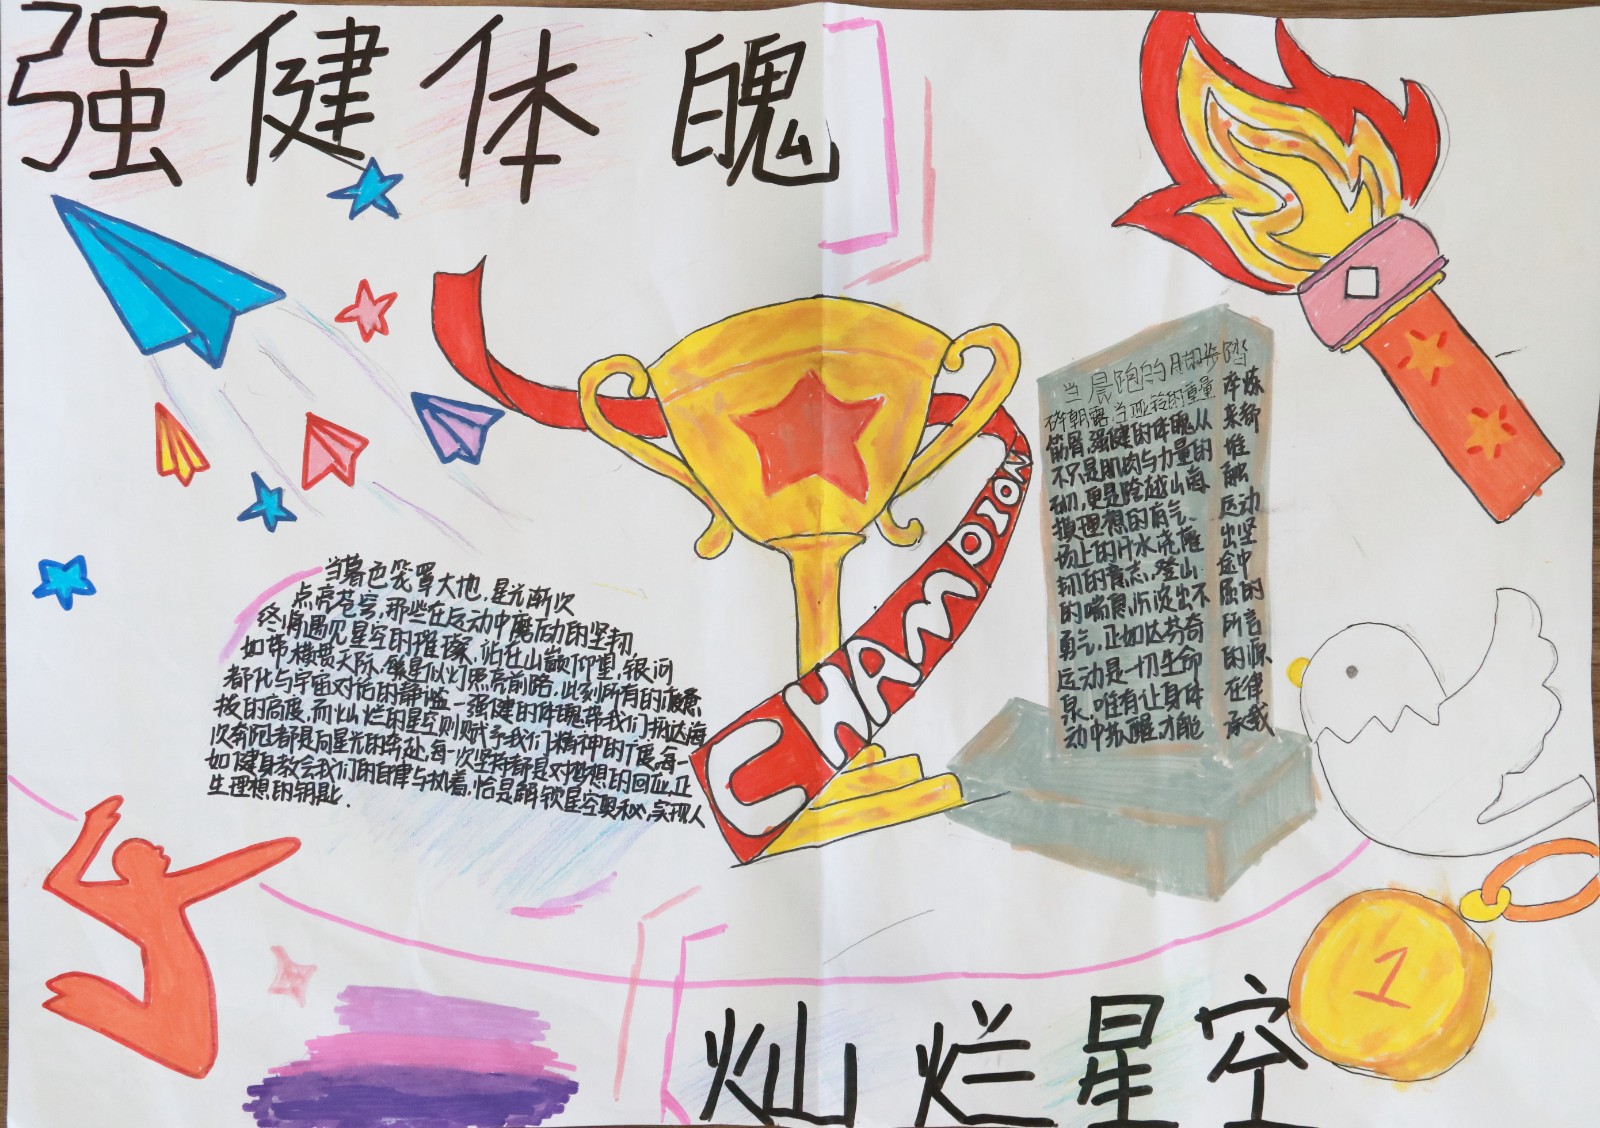 强健体魄
当晨跑的脚步踏
碎朝露,当哑铃的重量 淬炼
筋骨,强健的体魄从 来都
不只是肌肉与力量的 堆
砌,更是跨越山海 触
摸理想的底气、 运动
场上的汁水浇灌 出坚
韧的意志,登山 途中
的喘息,沉淀出不 屈的
勇气,正如达芬奇 所言
运动是一切生命 的源
泉,唯有让身体 在律
动中苏醒,才能 承载
CHAMPION
当暮色笼罩大地,星光渐次
点亮苍穹,那些在运动中磨励的坚韧,
终将遇见星空的璀璨,伫在山巅仰望,银河
如带横贯天际,繁星似灯照亮前路,此刻所有的疲惫
都化与宇宙对话的静谧—强健的体魄带我们抵达海
拔的高度,而灿烂的星空则赋予我们精神的广度,每一
次奔跑都是向星光的奔赴,每一次坚持都是对梦想的回应,正
如健身教会我们的自律与执着,恰是解锁星空奥秘,实现人
生理想的钥匙.
1
灿烂星空